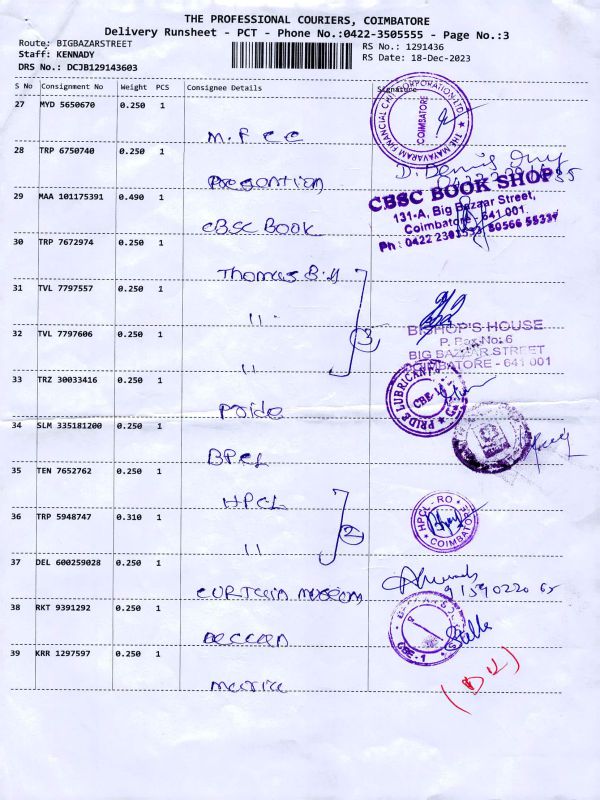 THE PROFESSIONAL COURIERS, COIMBATORE
Delivery Runsheet - PCT - Phone No.:0422-3505555 - Page No.:3
Route: BIGBAZARSTREET
RS No.: 1291436
Staff: KENNADY
RS Date: 18-Dec-2023
DRS No.: DCJB129143603
S No Consignment No Weight PCS Consignee Details Signature
27 MYD 5650670 0.250 1
M.F C C
THE MAYAVARAM FINANCIAL CHIT CORPORATION LTD
COIMBATORE
28 TRP 6750740 0.250 1
29 MAA 101175391 0.490 1
CBSC Book
CBSC BOOK SHOP
131-A, Big Bazaar Street,
Coimbatore - 641 001
30 TRP 7672974 0.250 1
Thomas
31 TVL 7797557 0.250 1
"
32 TVL 7797606 0.250 1
"
3
BISHOP'S HOUSE
P. Box No: 6
BIG BAZAAR STREET
COIMBATORE - 641 001
33 TRZ 30033416 0.250 1
Pride
PRIDE LUBRICANTS
34 SLM 335181200 0.250 1
BPCL
35 TEN 7652762 0.250 1
HPCL
36 TRP 5948747 0.310 1
"
2
HPCL - RO
COIMBATORE
37 DEL 600259028 0.250 1
CURTain museam
38 RKT 9391292 0.250 1
Deccan
CBE-1
Stella
39 KRR 1297597 0.250 1